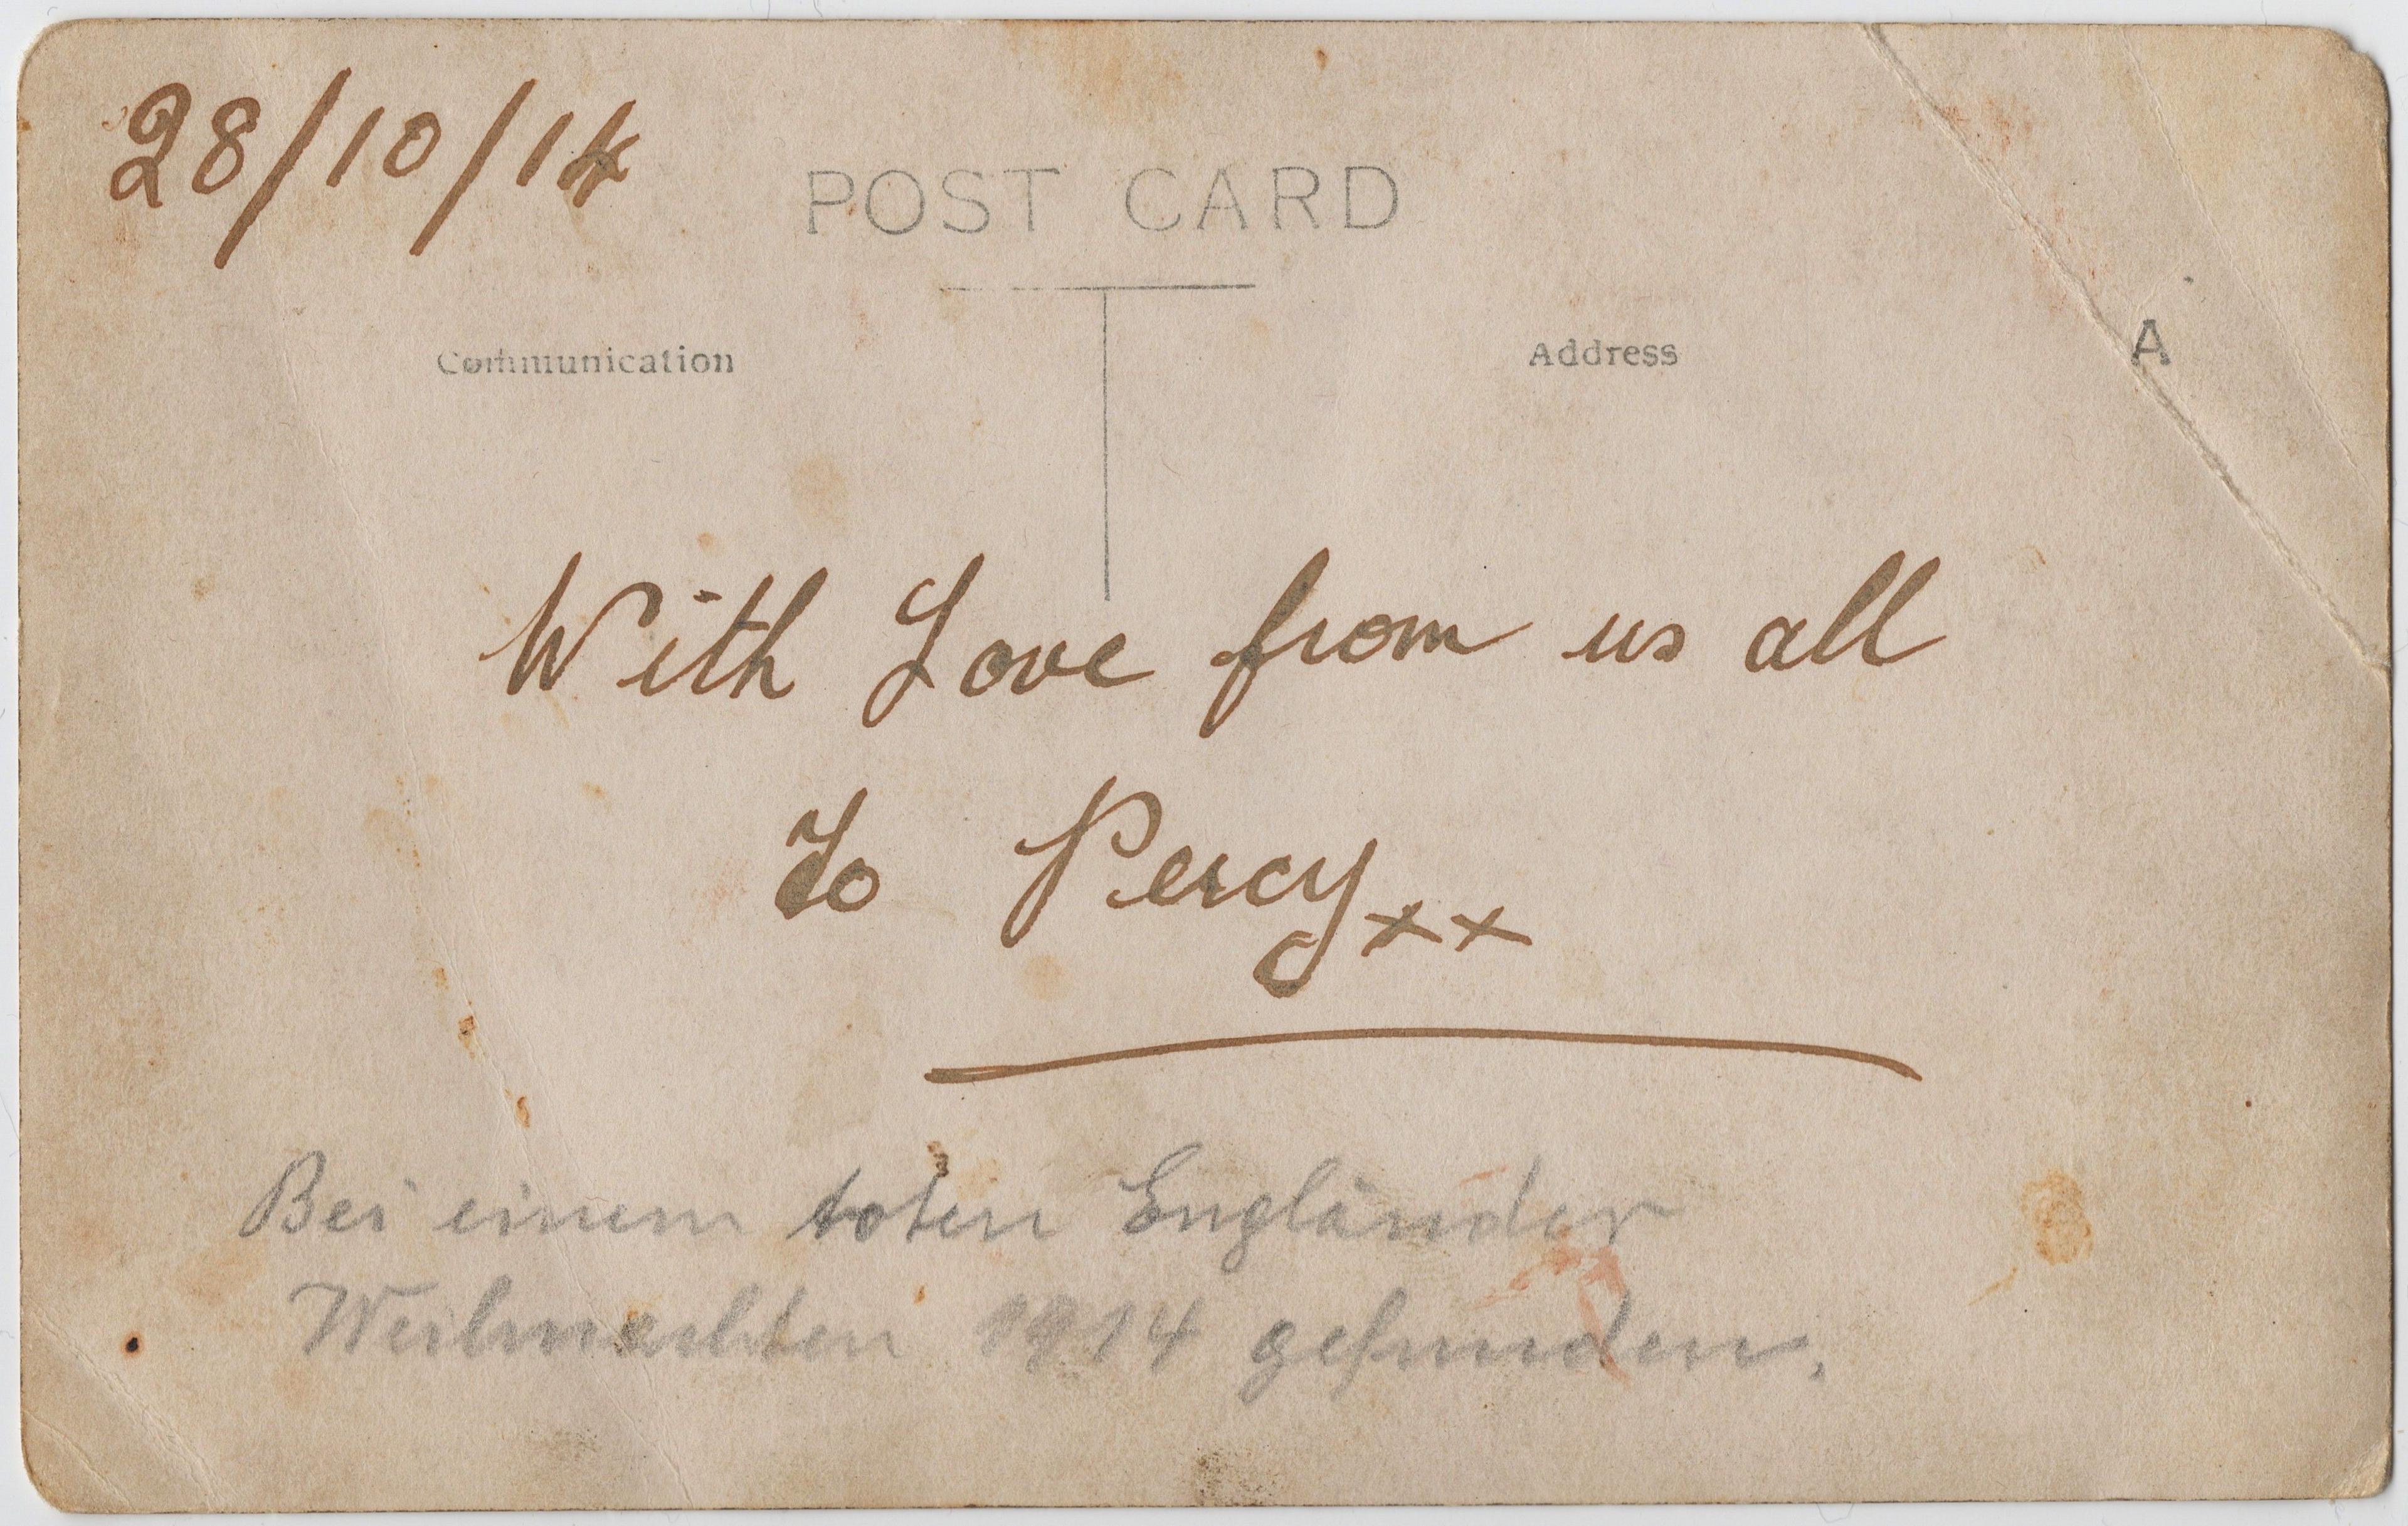 28/10/14
POST CARD
Communication
Address
A
With Love from us all
To Percy xx
Bei einem toten Engländer
Weihnachten 1914 gefunden.